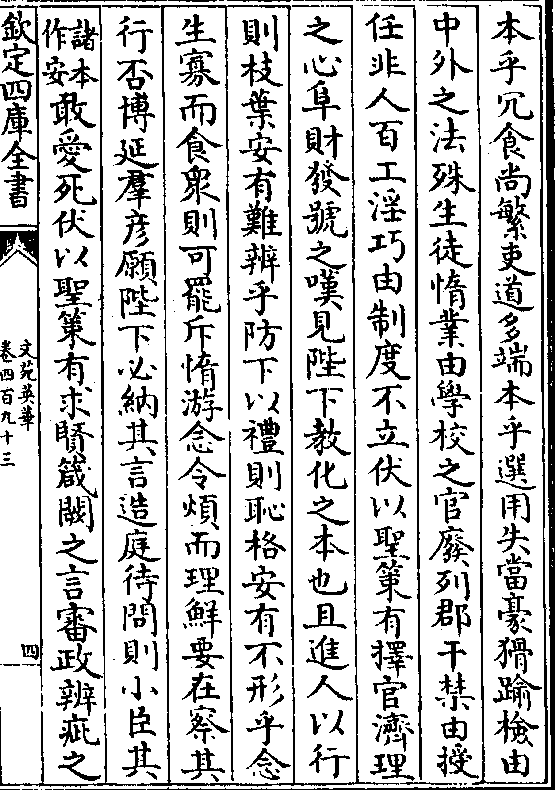 本乎冗食尚繁吏道多端本乎選用失當豪猾踰檢由
中外之法殊生徒惰業由學校之官廢列郡干禁由授
任非人百工淫巧由制度不立伏以聖策有擇官濟理
之心阜財發號之嘆見陛下教化之本也且進人以行
則枝葉安有難辨乎防下以禮則恥格安有不形乎念
生寡而食衆則可罷斥惰游念令煩而理鮮要在察其
行否博延羣彦願陛下必納其言造庭待問則小臣其
諸本作安敢愛死伏以聖策有求賢箴闕之言審政辨疵之
欽定四庫全書
文苑英華
卷四百九十三
四